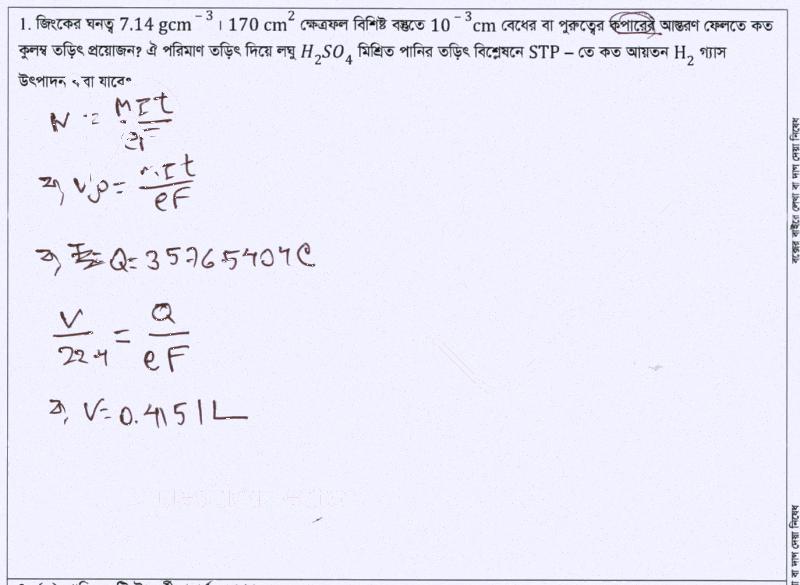 1. জিংকের ঘনত্ব 7.14 gcm⁻³ । 170 cm² ক্ষেত্রফল বিশিষ্ট বস্তুতে 10⁻³cm বেধের বা পুরুত্বের কপারের আস্তরণ ফেলতে কত
কুলম্ব তড়িৎ প্রয়োজন? ঐ পরিমাণ তড়িৎ দিয়ে লঘু H₂SO₄ মিশ্রিত পানির তড়িৎ বিশ্লেষনে STP – তে কত আয়তন H₂ গ্যাস
উৎপাদন বা যাবে
W = MIt / eF
⇒ Vρ = MIt / eF
⇒ Q = 3576.5404 C
V / 22.4 = Q / eF
⇒ V = 0.4151 L
বক্সের বাইরে লেখা বা দাগ দেয়া নিষেধ
বা দাগ দেয়া নিষেধ